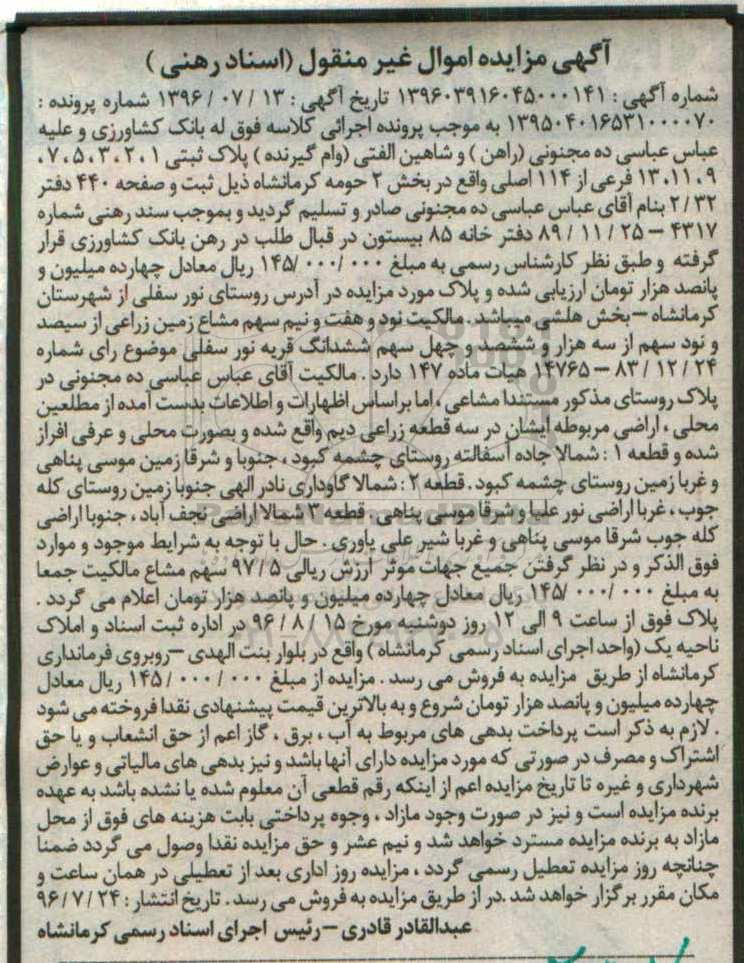 آگهی مزایده اموال غیر منقول (اسناد رهنی)
شماره آگهی: ۱۳۹۶۰۳۹۱۶۰۴۵۰۰۰۱۴۱ تاریخ آگهی: ۱۳ / ۰۷ / ۱۳۹۶ شماره پرونده:
۱۳۹۵۰۴۰۱۶۵۳۱۰۰۰۰۷۰ به موجب پرونده اجرائی کلاسه فوق له بانک کشاورزی و علیه
عباس عباسی ده مجنونی (راهن) و شاهین الفتی (وام گیرنده) پلاک ثبتی ۱، ۲، ۳، ۵، ۷،
۹، ۱۱، ۱۳ فرعی از ۱۱۴ اصلی واقع در بخش ۲ حومه کرمانشاه ذیل ثبت و صفحه ۴۴۰ دفتر
۲/۳۲ بنام آقای عباس عباسی ده مجنونی صادر و تسلیم گردید و بموجب سند رهنی شماره
۴۳۱۷ – ۲۵ / ۱۱ / ۸۹ دفتر خانه ۸۵ بیستون در قبال طلب در رهن بانک کشاورزی قرار
گرفته و طبق نظر کارشناس رسمی به مبلغ ۱۴۵/۰۰۰/۰۰۰ ریال معادل چهارده میلیون و
پانصد هزار تومان ارزیابی شده و پلاک مورد مزایده در آدرس روستای نور سفلی از شهرستان
کرمانشاه – بخش هلشی میباشد. مالکیت نود و هفت و نیم سهم مشاع زمین زراعی از سیصد
و نود سهم از سه هزار و ششصد و چهل سهم ششدانگ قریه نور سفلی موضوع رای شماره
۱۴۷۶۵ – ۸۳ / ۱۲ / ۲۴ هیات ماده ۱۴۷ دارد. مالکیت آقای عباس عباسی ده مجنونی در
پلاک روستای مذکور مستندا مشاعی، اما براساس اظهارات و اطلاعات بدست آمده از مطلعین
محلی، اراضی مربوطه ایشان در سه قطعه زراعی دیم واقع شده و بصورت محلی و عرفی افراز
شده و قطعه ۱: شمالا جاده آسفالته روستای چشمه کبود، جنوبا و شرقا زمین موسی پناهی
و غربا زمین روستای چشمه کبود. قطعه ۲: شمالا گاوداری نادر الهی جنوبا زمین روستای کله
جوب، غربا اراضی نور علیا و شرقا موسی پناهی. قطعه ۳ شمالا اراضی نجف آباد، جنوبا اراضی
کله جوب شرقا موسی پناهی و غربا شیر علی یاوری. حال با توجه به شرایط موجود و موارد
فوق الذکر و در نظر گرفتن جمیع جهات موثر ارزش ریالی ۹۷/۵ سهم مشاع مالکیت جمعا
به مبلغ ۱۴۵/۰۰۰/۰۰۰ ریال معادل چهارده میلیون و پانصد هزار تومان اعلام می گردد.
پلاک فوق از ساعت ۹ الی ۱۲ روز دوشنبه مورخ ۱۵ / ۸ / ۹۶ در اداره ثبت اسناد و املاک
ناحیه یک (واحد اجرای اسناد رسمی کرمانشاه) واقع در بلوار بنت الهدی – روبروی فرمانداری
کرمانشاه از طریق مزایده به فروش می رسد. مزایده از مبلغ ۱۴۵/۰۰۰/۰۰۰ ریال معادل
چهارده میلیون و پانصد هزار تومان شروع و به بالاترین قیمت پیشنهادی نقدا فروخته می شود
. لازم به ذکر است پرداخت بدهی های مربوط به آب، برق، گاز اعم از حق انشعاب و یا حق
اشتراک و مصرف در صورتی که مورد مزایده دارای آنها باشد و نیز بدهی های مالیاتی و عوارض
شهرداری و غیره تا تاریخ مزایده اعم از اینکه رقم قطعی آن معلوم شده یا نشده باشد به عهده
برنده مزایده است و نیز در صورت وجود مازاد، وجوه پرداختی بابت هزینه های فوق از محل
مازاد به برنده مزایده مسترد خواهد شد و نیم عشر و حق مزایده نقدا وصول می گردد ضمنا
چنانچه روز مزایده تعطیل رسمی گردد، مزایده روز اداری بعد از تعطیلی در همان ساعت و
مکان مقرر برگزار خواهد شد.در از طریق مزایده به فروش می رسد. تاریخ انتشار: ۹۶/۷/۲۴
عبدالقادر قادری – رئیس اجرای اسناد رسمی کرمانشاه